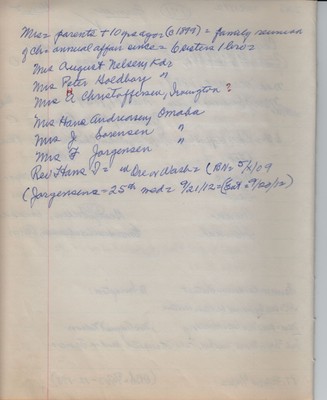 Mrs = parents + 10 yrs ago = (c 1899) = family reunion
of ch = annual affair since = 6 sisters 1 bro =
Mrs August Nelsen, Kdr
Mrs Peter Goldborg "
Mrs A Christoffersen, Irvington ?
Mrs Hans Andreasen, Omaha
Mrs J Sorensen "
Mrs F Jorgensen "
Rev Hans in Ore or Wash = (BN = 5/ /09
(Jorgensens = 25th wed = 9/21/12 = (Ent = 9/20/12)